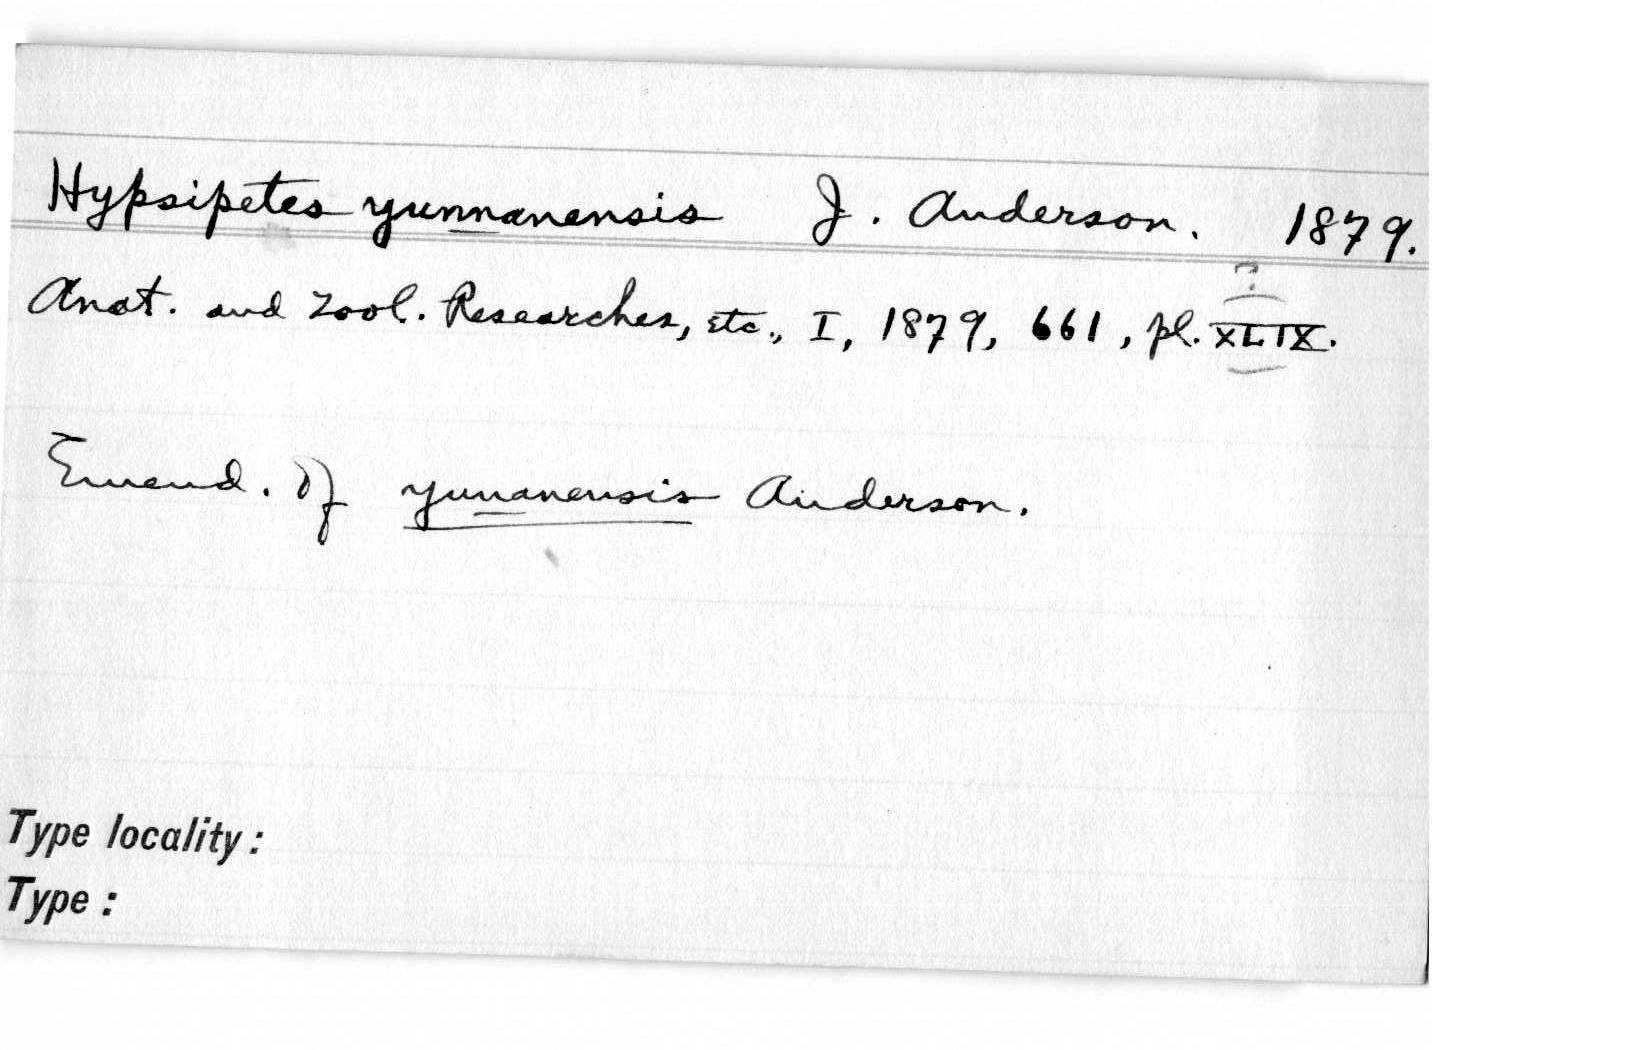 Hypsipetes yunnanensis J. Anderson. 1879.
?
Anat. and Zool. Researches, etc., I, 1879, 661, pl. XLIX.
Emend. of yunanensis Anderson.
Type locality:
Type: